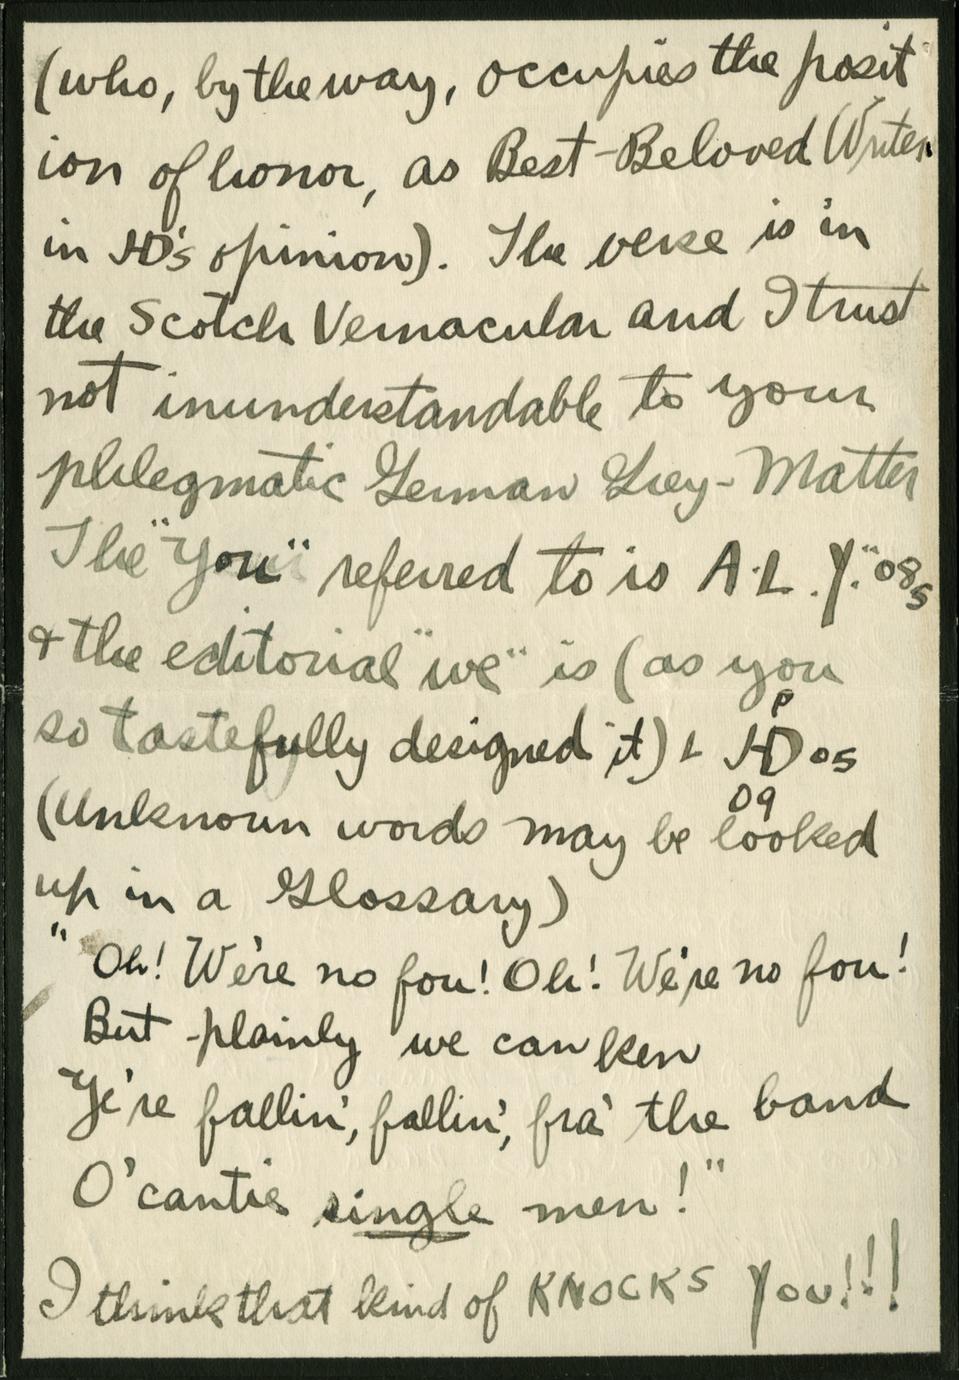 (who, by the way, occupies the posit
ion of honor, as Best-Beloved Writer
in HD's opinion). The verse is in
the Scotch Vernacular and I trust
not inunderstandable to your
phlegmatic German Grey-Matter
The "You" referred to is A.L.Y. "08
& the editorial "we" is (as you
so tastefully designed it)
(Unknown words may be looked
up in a Glossary)
" Oh! We're no fou! Oh! We're no fou!
But plainly we can ken
Ye're fallin', fallin', fra' the band
O' cantie single men!"
I think that kind of KNOCKS You!!!